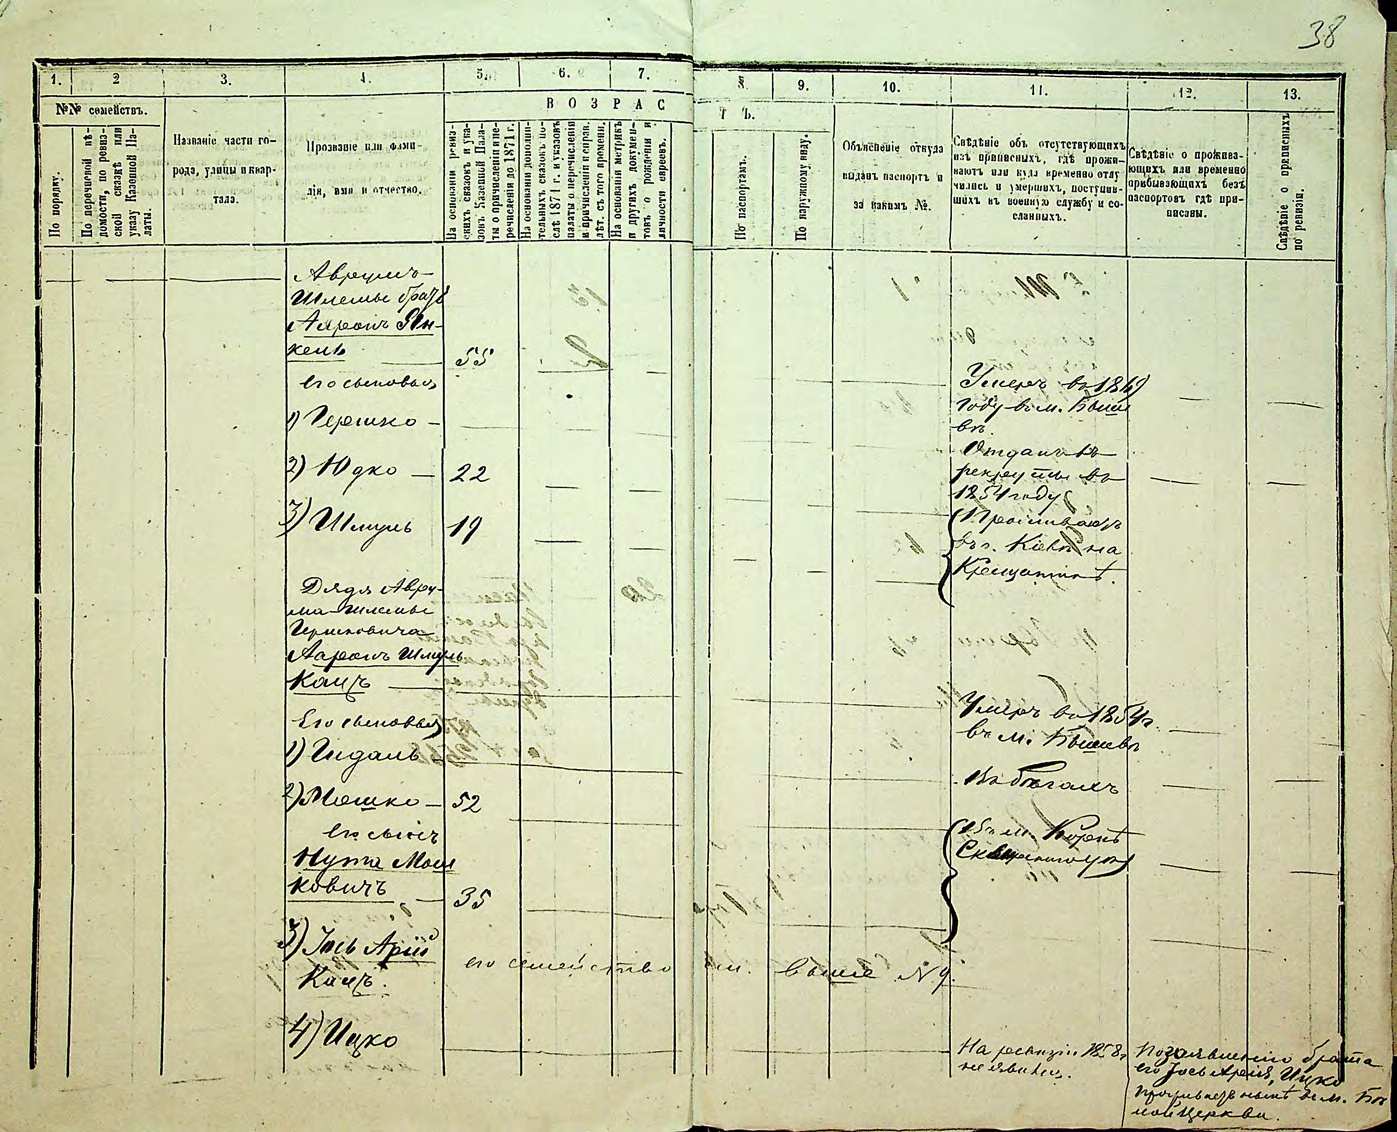 38
1. 2 3. 4. 5. 6. 7. 8. 9. 10. 11. 12. 13.
№№ семействъ.
ВОЗРАСТЪ.
По порядку.
По перечневой вѣ-
домости, по ревиз-
ской сказкѣ или
указу Казенной Па-
латы.
Названіе части го-
рода, улицы и квар-
тала.
Прозваніе или фами-
лія, имя и отчество.
На основаніи ревиз-
скихъ сказокъ и ука-
зовъ Казенной Пала-
ты о причисленіи и пе-
речисленіи до 1871 г.
На основаніи дополни-
тельныхъ сказокъ по-
слѣ 1871 г. и указовъ
палаты о перечисленіи
и причисленіи и справ.
лѣт. съ того времени.
На основаніи метрикъ
и другихъ докумен-
товъ о рожденіи и
личности евреевъ.
По паспортамъ.
По наружному виду.
Объясненіе откуда
выданъ паспортъ и
за какимъ №.
Свѣдѣніе объ отсутствующихъ
изъ приписныхъ, гдѣ прожи-
ваютъ или куда временно отлу
чились и умершихъ, поступив-
шихъ въ военную службу и со-
сланныхъ.
Свѣдѣніе о прожива-
ющихъ или временно
прибывающихъ безъ
паспортовъ гдѣ при-
писаны.
Свѣдѣніе о приписныхъ
по ревизіи.
Аврумъ-
Шлемы братъ
Ааронъ Ян-
кель 55
Его сыновья
1) Гершко -
Умеръ въ 1869
году въ м. Быше
вѣ.
2) Юдко - 22
Отданъ въ
рекруты въ
1854 году
3) Шмуль 19
Проживаетъ
въ г. Кіевѣ на
Крещатикѣ.
Дядя Авру-
ма-Шлемы
Гершковича
Ааронъ Шмуль
Кацъ
Его сыновья
1) Гидаль
Умеръ въ 1854 г.
въ м. Бышевѣ
2) Мошко - 52
Въ бѣгахъ
его сынъ
Нута Мош
ковичъ 35
Въ м.
3) Іось Арій
Кацъ. его семейство см. выше № 9.
4) Ицко
На ревизіи 1858 г.
не явился.
По заявленію брата
его Іось Арія, Ицко
проживаетъ нынѣ въ м. Бѣ
лой Церкви.